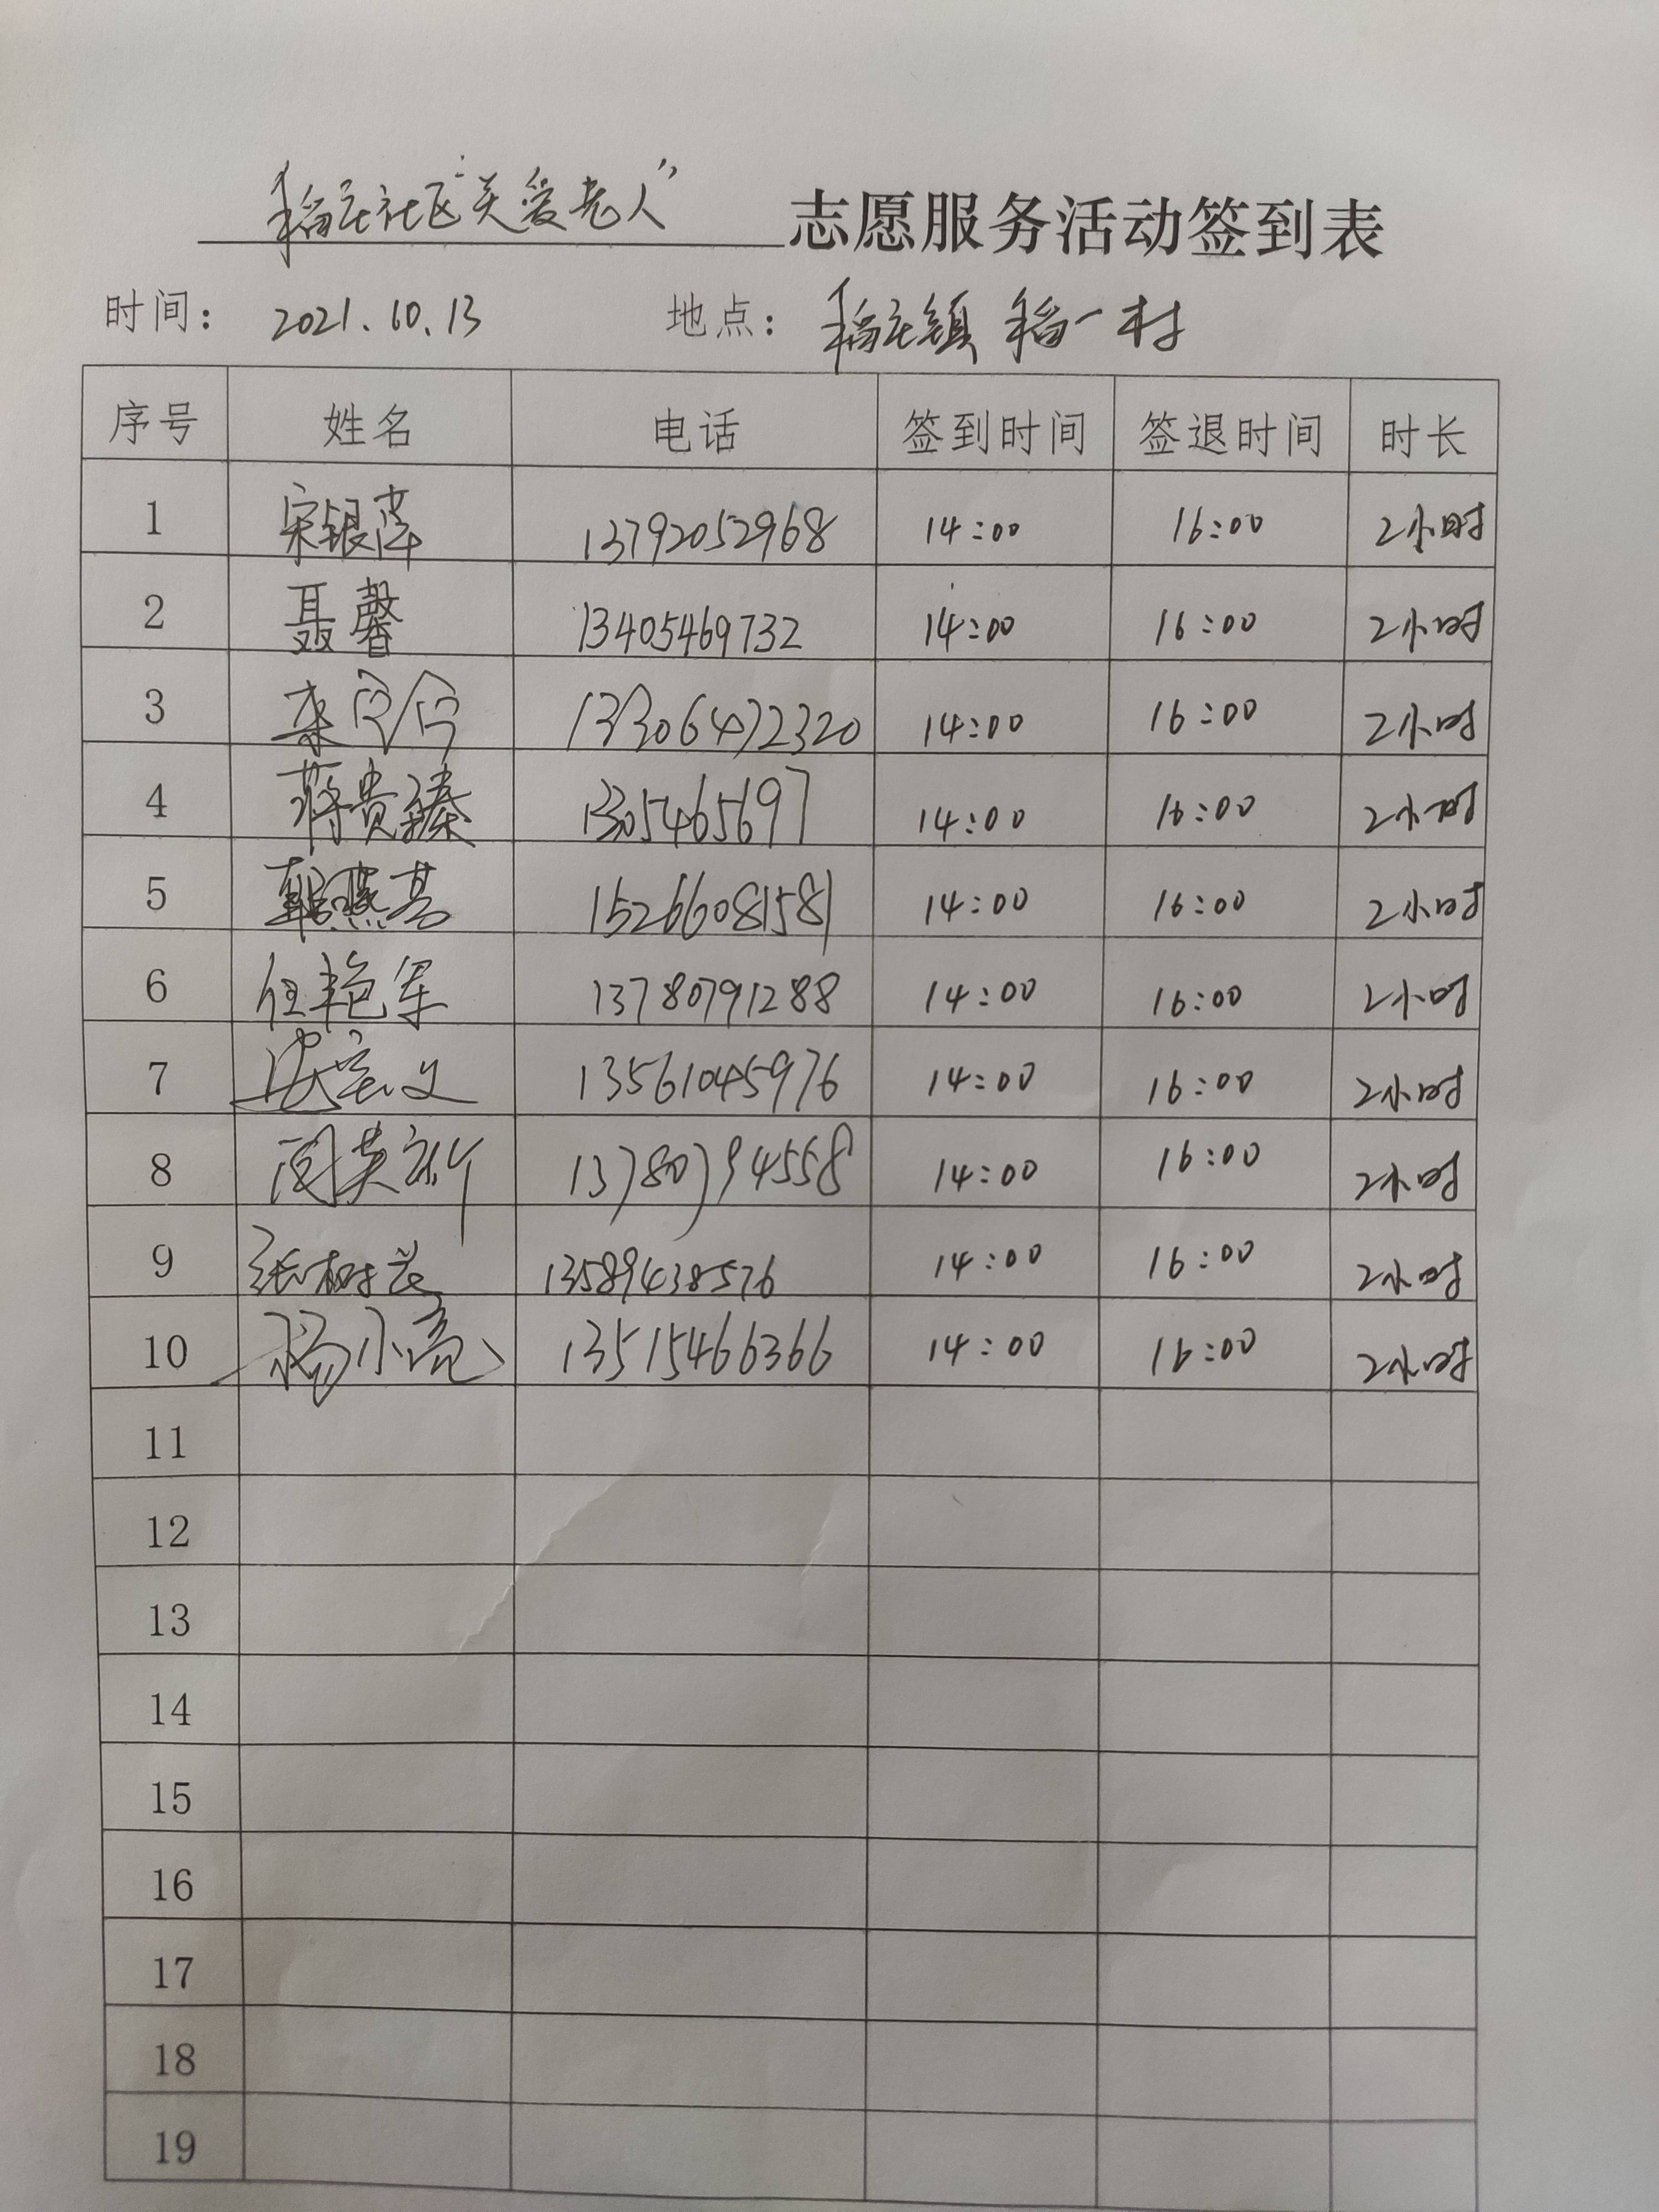 稻庄社区"关爱老人" 志愿服务活动签到表
时间： 2021.10.13 地点： 稻庄镇 稻一村
序号 姓名 电话 签到时间 签退时间 时长
1 宋银萍 13792052968 14:00 16:00 2小时
2 聂馨 13405469732 14:00 16:00 2小时
3 13306472320 14:00 16:00 2小时
4 蒋贵臻 13305465697 14:00 16:00 2小时
5 15266081581 14:00 16:00 2小时
6 任艳军 13780791288 14:00 16:00 2小时
7 13561045976 14:00 16:00 2小时
8 13780794558 14:00 16:00 2小时
9 张树 13589438576 14:00 16:00 2小时
10 杨小亮 13515466366 14:00 16:00 2小时
11
12
13
14
15
16
17
18
19